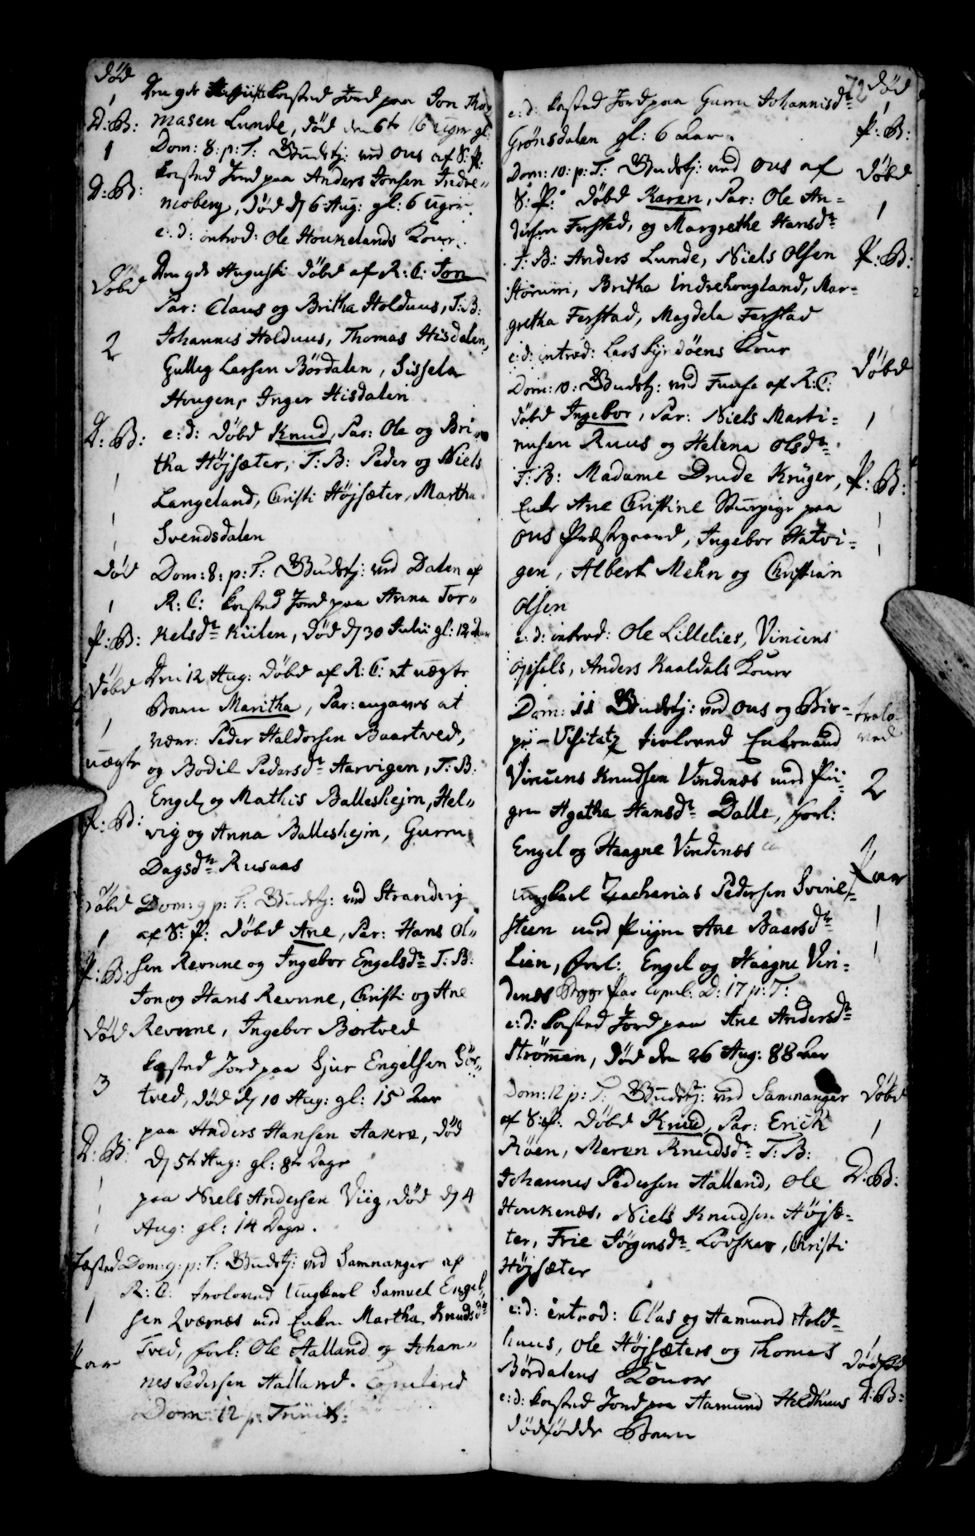 død
1
D: B:
1
D: B:
Døbd
2
D: B:
1
1
1
død
1
P: B:
Døbd
1
uægte
P: B:
døbd
1
P: B:
død
3
D: B:
1
1
Fæsted
1
Par
kasted Jord paa Jon Tho-
masen Lunde, død den 6te 16 uger gl:
Dom: 8: p: T: Gudstj: ved Ous af S: P:
kasted Jord paa Anders Jonsen Indre-
nioberg, død d 6 Aug: gl: 6 uger.
e: d: introd: Ole Houkelands Kone.
Augusti døbd af R: C: Jon
Par: Claus og Britha Holduus, T: B:
Johannis Holduus, Thomas Hisdalen,
Gulleg Larsen Bördalen, Sissela
Hougen, Inger Hisdalen
e: d: døbd Knud, Par: Ole og Bri-
tha Höjsæter, T: B: Peder og Niels
Langeland, Christi Höjsæter, Martha
Svendsdalen
Dom: 8: p: T: Gudstj: ved Dalen af
R: C: kasted Jord paa Anna Tor-
kelsdr Kiilen, død d 30 Julii gl: 12
Den 12 Aug: døbd af R: C: et uægte
Barn Maritha, Par: angaves at
være: Peder Haldorsen Baartved,
og Bodil Pedersdr Aarvigen, T: B:
Engel og Mathis Ballesheim, Hel-
vig og Anna Ballesheim, Gurru
Dagsdr Rusaas
Dom: 9 p: T: Gudstj: ved Strandvig
af S: P: døbd Ane, Par: Hans Ol-
sen Revne og Ingebor Engelsdr T: B:
Jon og Hans Revnne, Christi og Ane
Revnne, Ingebor Bortved
kasted Jord paa Sjur Engelsen
tved, død d 10 Aug: gl: 15 Aar
paa Anders Hansen Aakre, død
d 5te Aug: gl: 8te Dage
paa Niels Andersen Viig, død d 4
Aug: gl: 14 Dage.
Dom: 9: p: T: Gudstj: ved Samnanger af
R: C: troloved Ungkarl Samuel Engel-
sen Qværnes med Enken Martha Knudsdr
Tved, forl: Ole Aalland og Johan-
nes Pedersen Halland. Copulered
Dom: 12 p: Trinit:
72
e: d: kasted Jord paa Gurru Johannisdr
Grönsdalen gl: 6 Aar.
Dom: 10: p: T: Gudstj: ved Ous af
S: P: døbd Karen, Par: Ole An-
dersen Ferstad, og Margrethe Hansdr
T: B: Anders Lunde, Niels Olsen
Storum, Britha Indrehougland, Mar-
gretha Ferstad, Magdela Ferstad
e: d: introd: Lars Syrdöens Kone
Dom: 10: Gudstj: ved Fuuse af R: C:
døbd Ingebor, Par: Niels Marti-
nusen Ruus og Helena Olsdr.
T: B: Madame Drude Krüger,
Enke Ane Christine Stuepige paa
Ous Præstegaard, Ingebor Hatvi-
gen, Albert Mehn og Christian
Olsen
e: d: introd: Ole Lillelies, Vincens
Opsals, Anders Kaaldals Koner
Dom: 11 Gudstj: ved Ous og Bis-
pe-Visitatz troloved Enkemand
Vincens Knudsen Vindenæs med Pii-
gen Agatha Hansdr Dalle, forl:
Engel og Haagne Vindenæs
Ungkarl Zacharias Pedersen Svine-
steen med Piigen Ane Baarsdr
Lien, forl: Engel og Haagne Vin-
denæs Begge Par copul: D: 17 p: T:
e: d: kasted Jord paa Ane Andersdr
Strömen, død den 26 Aug: 88 Aar
Dom: 12 p: T: Gudstj: ved Samnanger
af S: P: døbd Knud, Par: Erich
Röen, Maren Knudsdr T: B:
Johannes Pedersen Aalland, Ole
Houkenæs, Niels Knudsen Höjsæ-
ter, Frie Jörgensdr Lövskar, Christi
Höjsæter
e: d: introd: Clas og Aamund Hold-
huus, Ole Höjsæters og Thomas
Bördalens Koner
e: d: kasted Jord paa Aamund Holdhuus
dödfødde Barn
død
1
P: B:
Døbd
1
P: B:
2
Døbd
1
P: B:
1
1
trolo-
ved
2
Par
1
1
Døbd
1
D: B:
1
Dødfød
D: B: